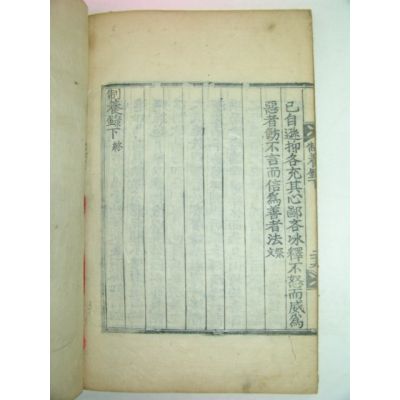 己自遜抑各充其心鄙吝冰釋不怒而威爲
惡者勸不言而信爲善者法
制養錄下 終
制養錄下